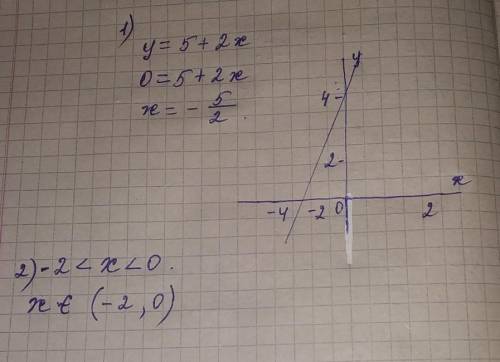 1)
y = 5 + 2x
0 = 5 + 2x
x = - 5/2
y
4
2
x
-4 -2 0 2
2) -2 < x < 0.
x ∈ (-2, 0)